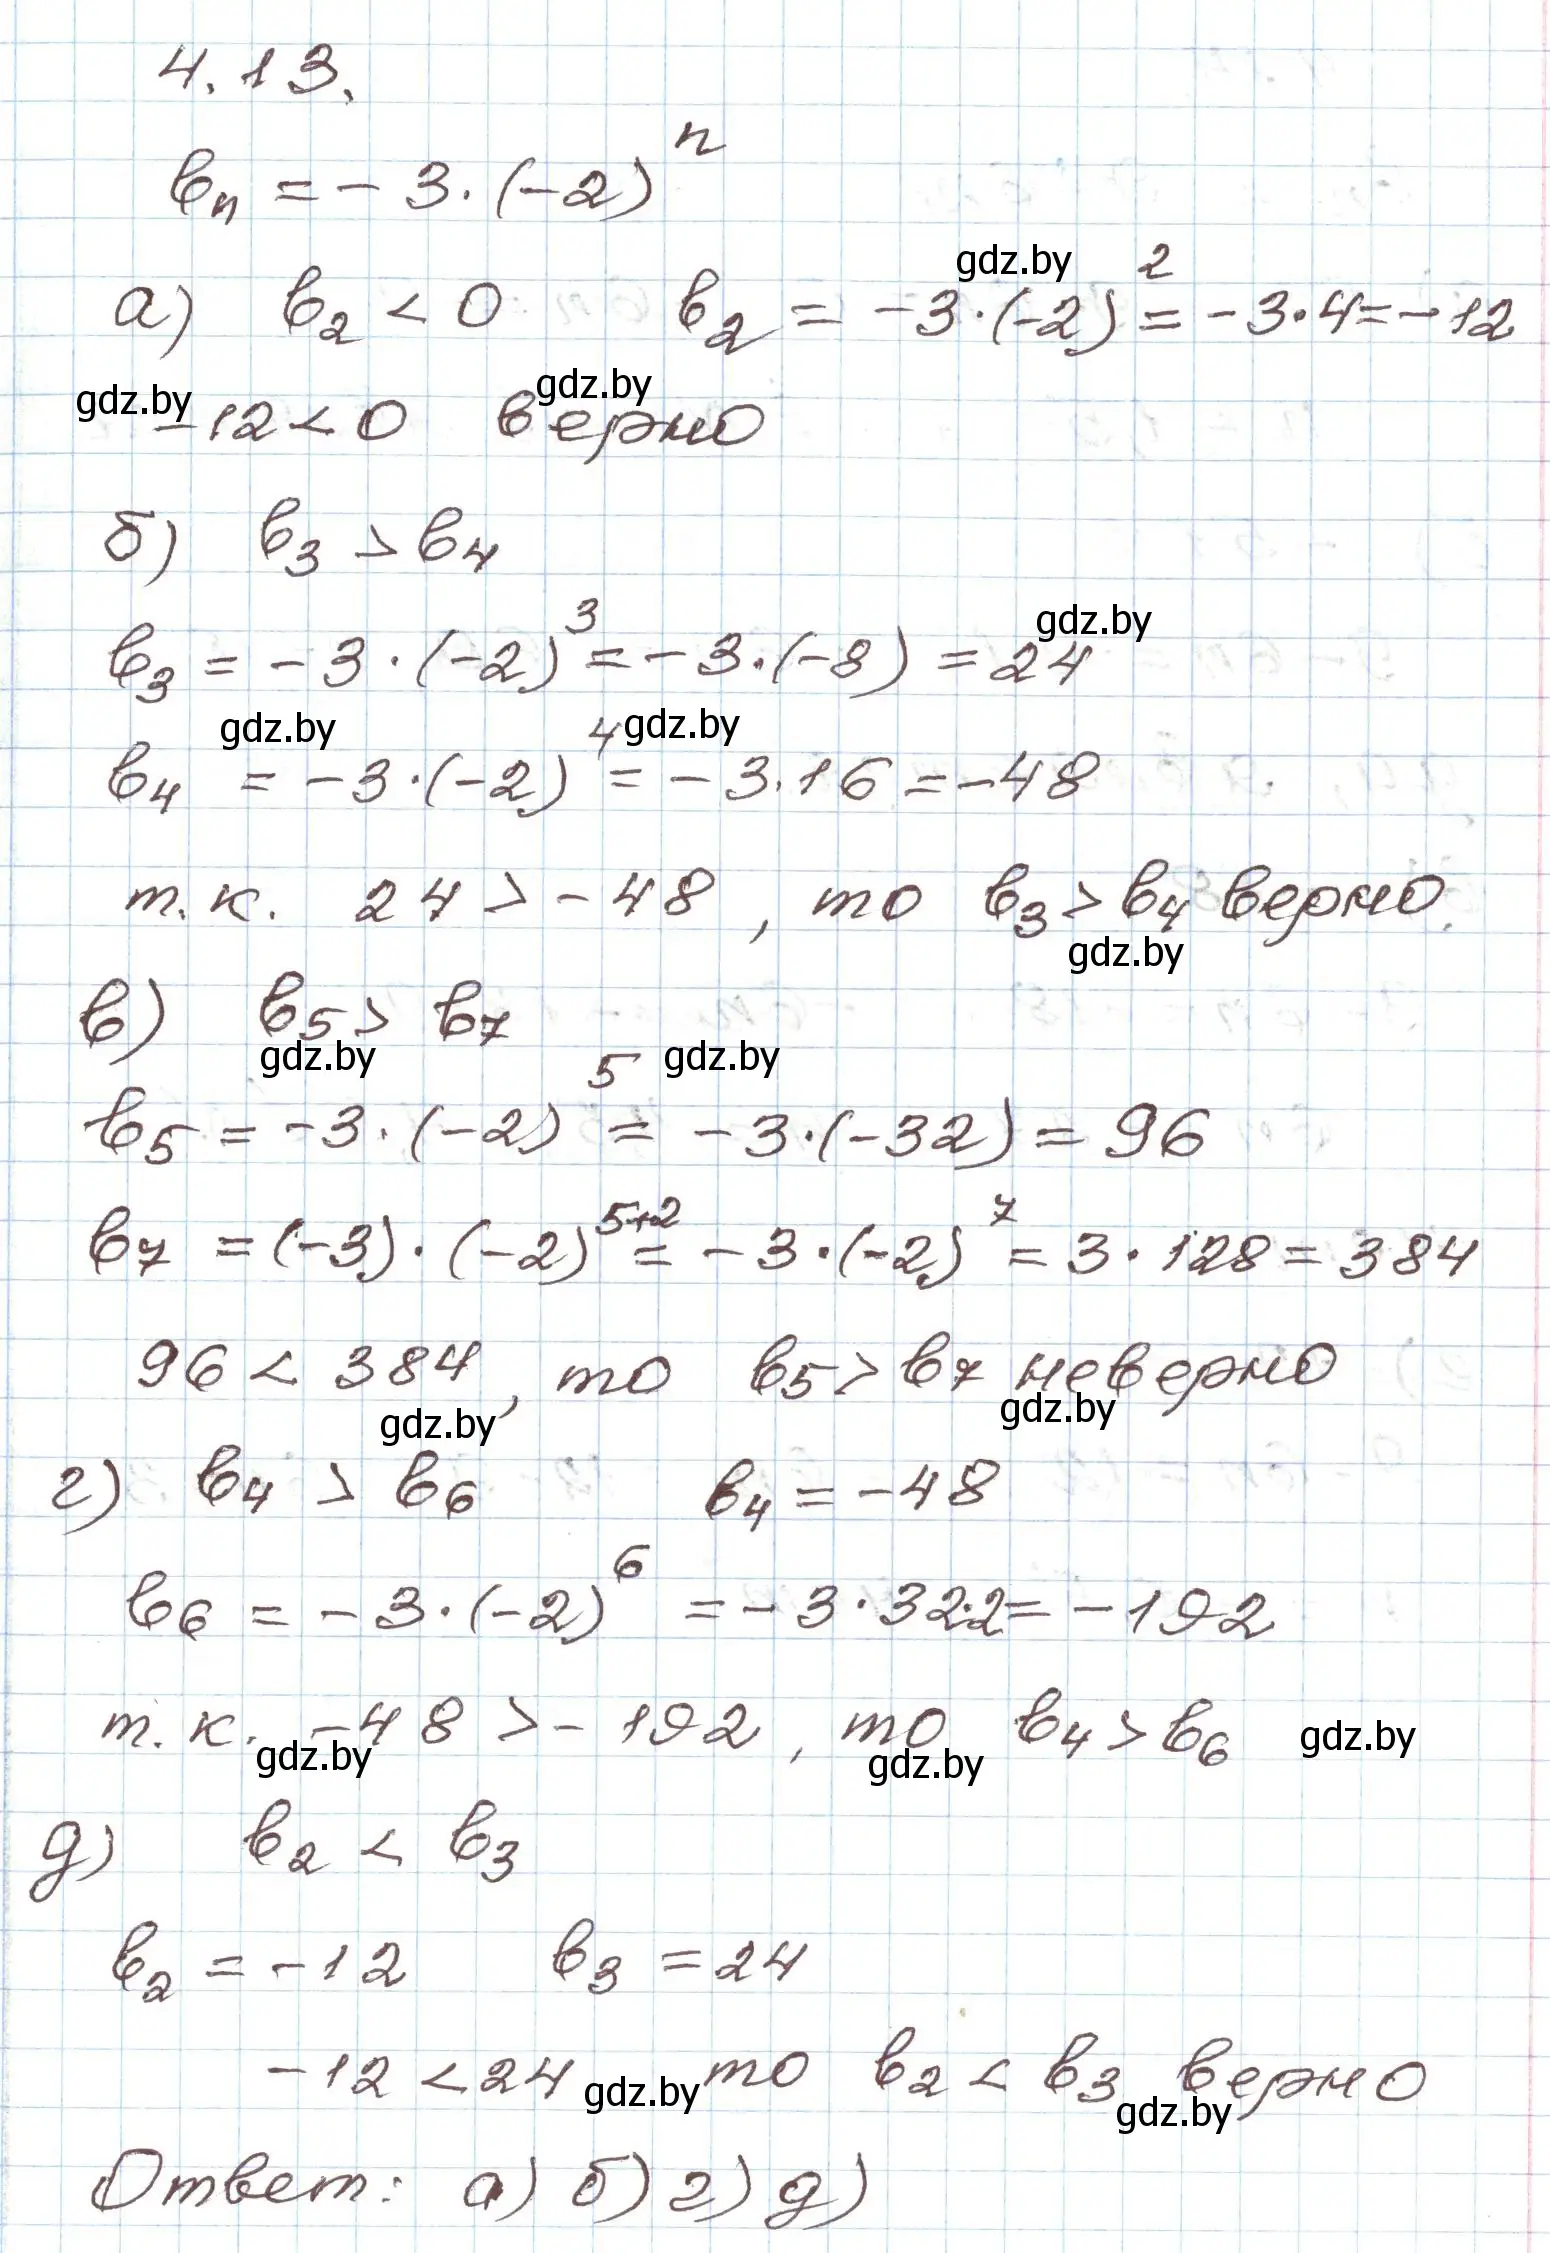 4.13.
bₙ = -3·(-2)ⁿ
gdz.by
а) b₂ < 0 b₂ = -3·(-2)² = -3·4 = -12
gdz.by gdz.by
-12 < 0 верно
б) b₃ > b₄
gdz.by
b₃ = -3·(-2)³ = -3·(-8) = 24
gdz.by gdz.by
b₄ = -3·(-2)⁴ = -3·16 = -48
т.к. 24 > -48, то b₃ > b₄ верно.
gdz.by
в) b₅ > b₇
gdz.by gdz.by
b₅ = -3·(-2)⁵ = -3·(-32) = 96
b₇ = (-3)·(-2)⁵⁺² = -3·(-2)⁷ = 3·128 = 384
96 < 384, то b₅ > b₇ неверно
gdz.by gdz.by
г) b₄ > b₆ b₄ = -48
b₆ = -3·(-2)⁶ = -3·32·2 = -192
т.к. -48 > -192, то b₄ > b₆ gdz.by
gdz.by gdz.by
д) b₂ < b₃
b₂ = -12 b₃ = 24
-12 < 24 то b₂ < b₃ верно
gdz.by gdz.by
Ответ: а) б) г) д)